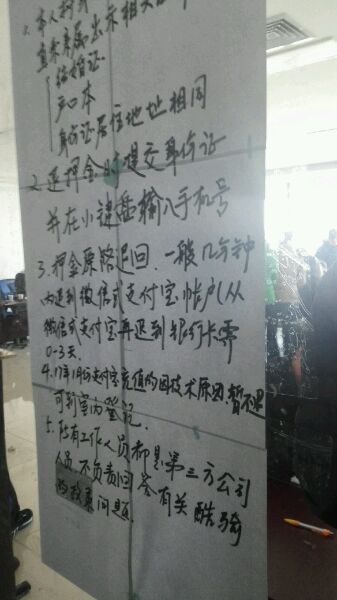 1.本人到
直系亲属出示相关
结婚证
户口本
身份证居住地址相同
2.退押金时提交身份证
并在小键盘输入手机号
3.押金原路退回.一般几分钟
内退到微信或支付宝帐户(从
微信或支付宝再退到银行卡需
0-3天.
4.17年1月份支付宝充值的因技术原因暂不退
可到室内登记.
5.所有工作人员都是第三方公司
人员.不负责回答有关酷骑
的政策问题.